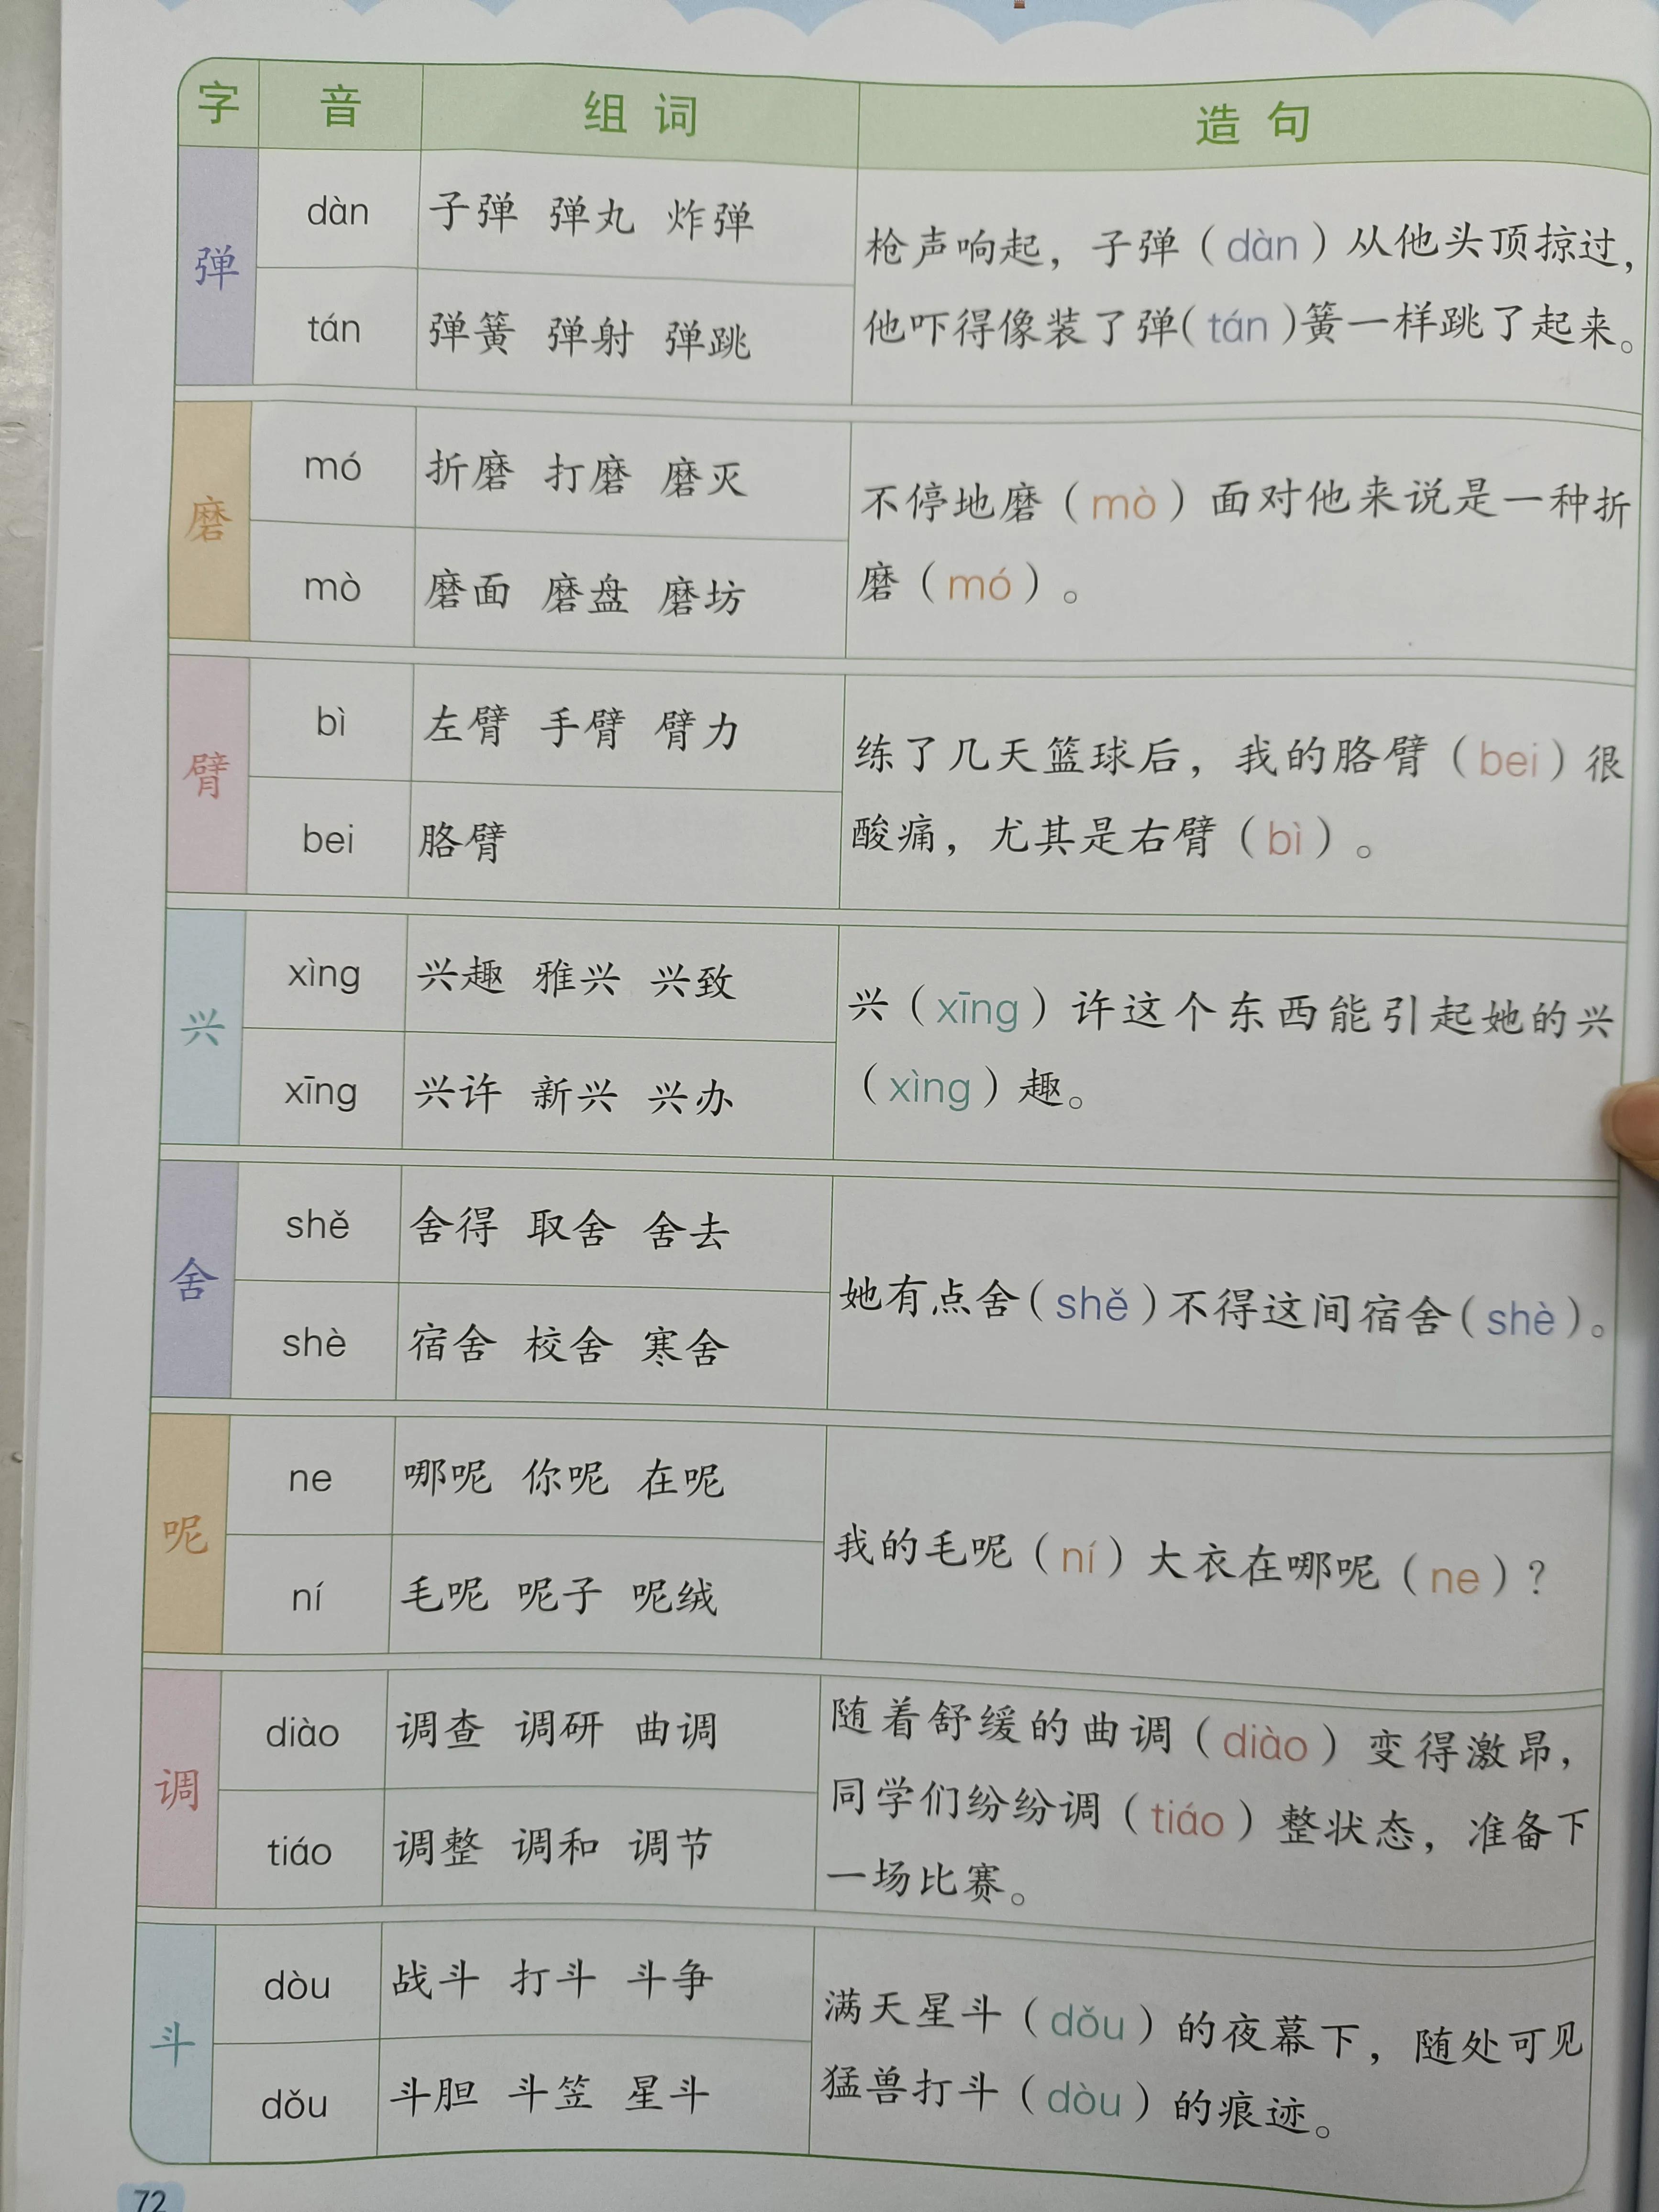 字 音 组词 造句
弹
dàn 子弹 弹丸 炸弹
tán 弹簧 弹射 弹跳
枪声响起，子弹（dàn）从他头顶掠过，
他吓得像装了弹（tán）簧一样跳了起来。
磨
mó 折磨 打磨 磨灭
mò 磨面 磨盘 磨坊
不停地磨（mò）面对他来说是一种折
磨（mó）。
臂
bì 左臂 手臂 臂力
bei 胳臂
练了几天篮球后，我的胳臂（bei）很
酸痛，尤其是右臂（bì）。
兴
xìng 兴趣 雅兴 兴致
xīng 兴许 新兴 兴办
兴（xīng）许这个东西能引起她的兴
（xìng）趣。
舍
shě 舍得 取舍 舍去
shè 宿舍 校舍 寒舍
她有点舍（shě）不得这间宿舍（shè）。
呢
ne 哪呢 你呢 在呢
ní 毛呢 呢子 呢绒
我的毛呢（ní）大衣在哪呢（ne）？
调
diào 调查 调研 曲调
tiáo 调整 调和 调节
随着舒缓的曲调（diào）变得激昂，
同学们纷纷调（tiáo）整状态，准备下
一场比赛。
斗
dòu 战斗 打斗 斗争
dǒu 斗胆 斗笠 星斗
满天星斗（dǒu）的夜幕下，随处可见
猛兽打斗（dòu）的痕迹。
72